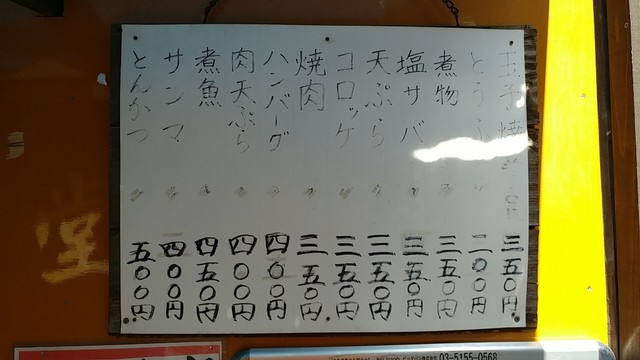 玉子焼き 三五〇円
とうふ 二〇〇円
煮物 三五〇円
塩サバ 三五〇円
天ぷら 三五〇円
コロッケ 三五〇円
焼肉 三五〇円
ハンバーグ 四〇〇円
肉天ぷら 四〇〇円
煮魚 四五〇円
サンマ 四〇〇円
とんかつ 五〇〇円
堂
03-5155-0568